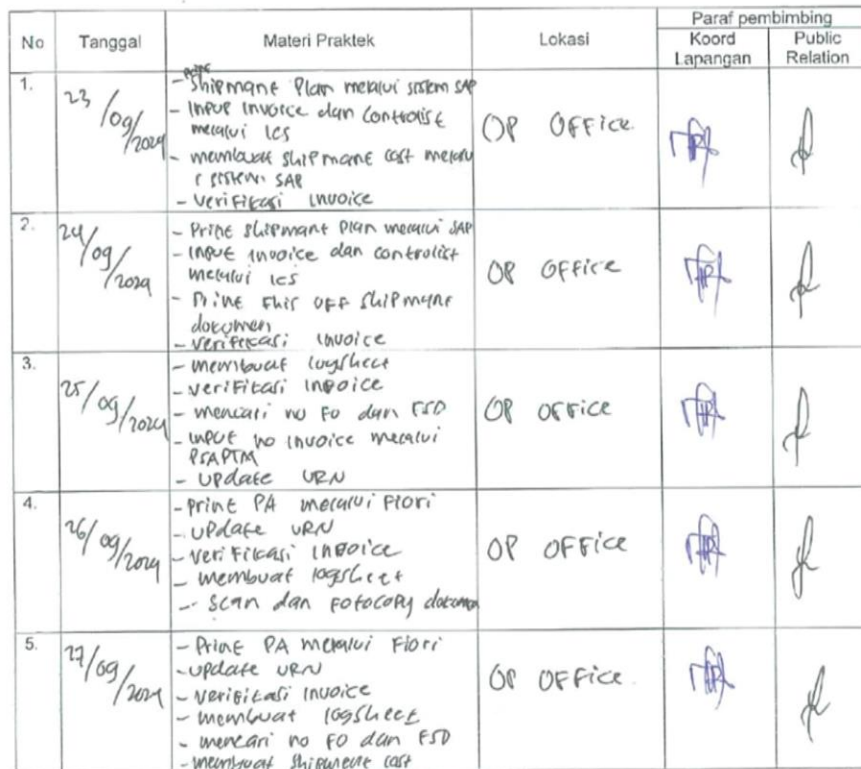 No Tanggal Materi Praktek Lokasi Paraf pembimbing
Koord Lapangan Public Relation
1. 23/09/2024 OP OFFice
Print
- Shipmant Plan melalui sistem SAP
- Input Invoice dan Controlist
melalui ICS
- membuat shipmant cost melalui
sistem SAP
- Verifikasi Invoice
2. 24/09/2024 OP OFFice
- Print shipmant Plan melalui SAP
- Input invoice dan controlist
melalui ICS
- Print OFF Shipmant
dokumen
- Verifikasi Invoice
3. 25/09/2024 OP OFFice
- membuat logsheet
- Verifikasi Invoice
- mencari no FO dan FSD
- input no invoice melalui
PSAPTM
- Update URN
4. 26/09/2024 OP OFFice
- Print PA melalui Fiori
- Update URN
- Verifikasi Invoice
- membuat logsheet
- Scan dan Fotocopy dokumen
5. 27/09/2024 OP OFFice
- Print PA melalui Fiori
- Update URN
- Verifikasi Invoice
- membuat logsheet
- mencari no FO dan FSD
- membuat shipment cost